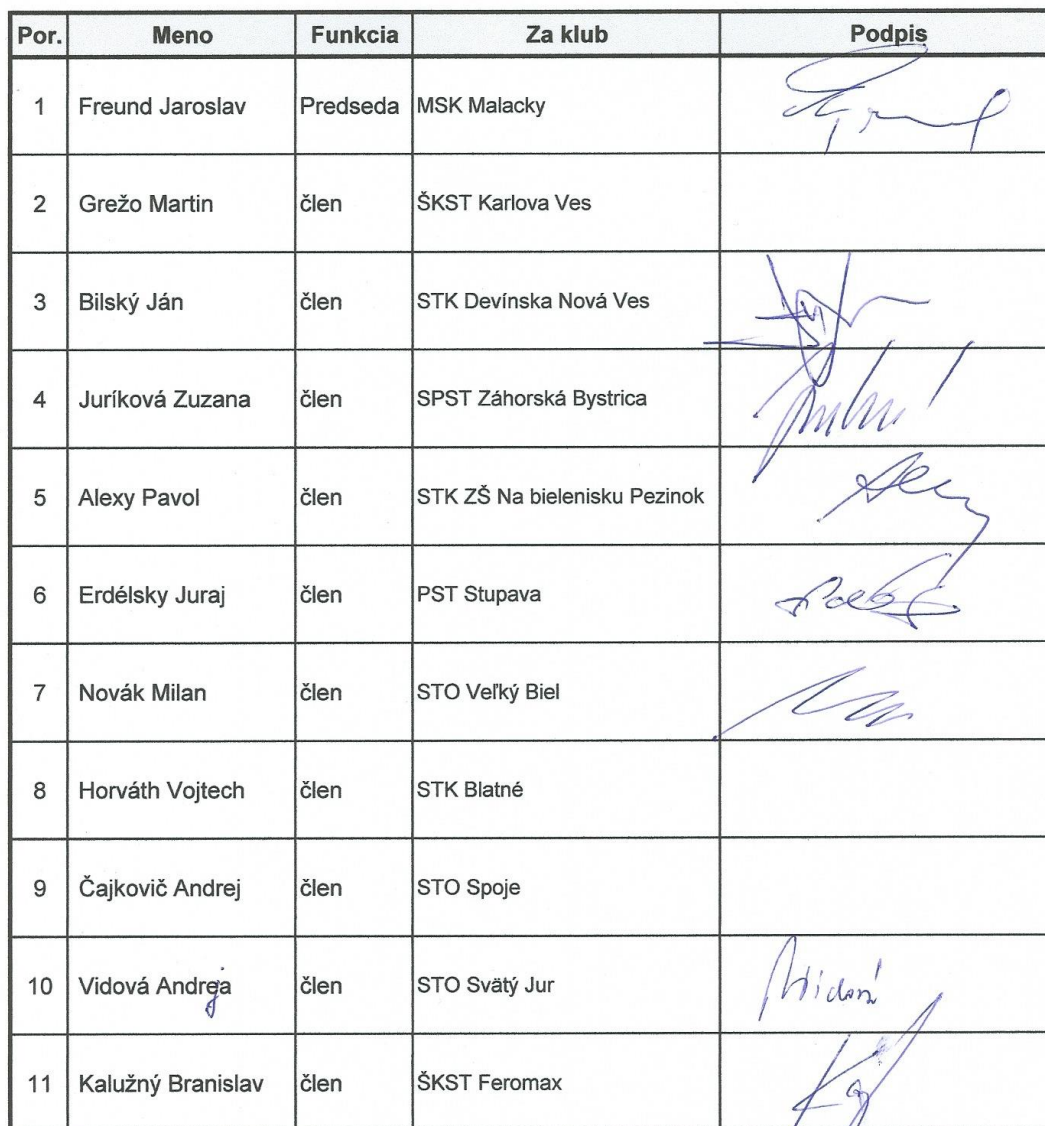 Por. Meno Funkcia Za klub Podpis
1 Freund Jaroslav Predseda MSK Malacky
2 Grežo Martin člen ŠKST Karlova Ves
3 Bilský Ján člen STK Devínska Nová Ves
4 Juríková Zuzana člen SPST Záhorská Bystrica
5 Alexy Pavol člen STK ZŠ Na bielenisku Pezinok
6 Erdélsky Juraj člen PST Stupava
7 Novák Milan člen STO Veľký Biel
8 Horváth Vojtech člen STK Blatné
9 Čajkovič Andrej člen STO Spoje
10 Vidová Andreja člen STO Svätý Jur Vidová
11 Kalužný Branislav člen ŠKST Feromax